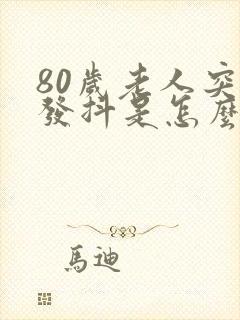 80歲老人突
發抖是怎麼
馬迪